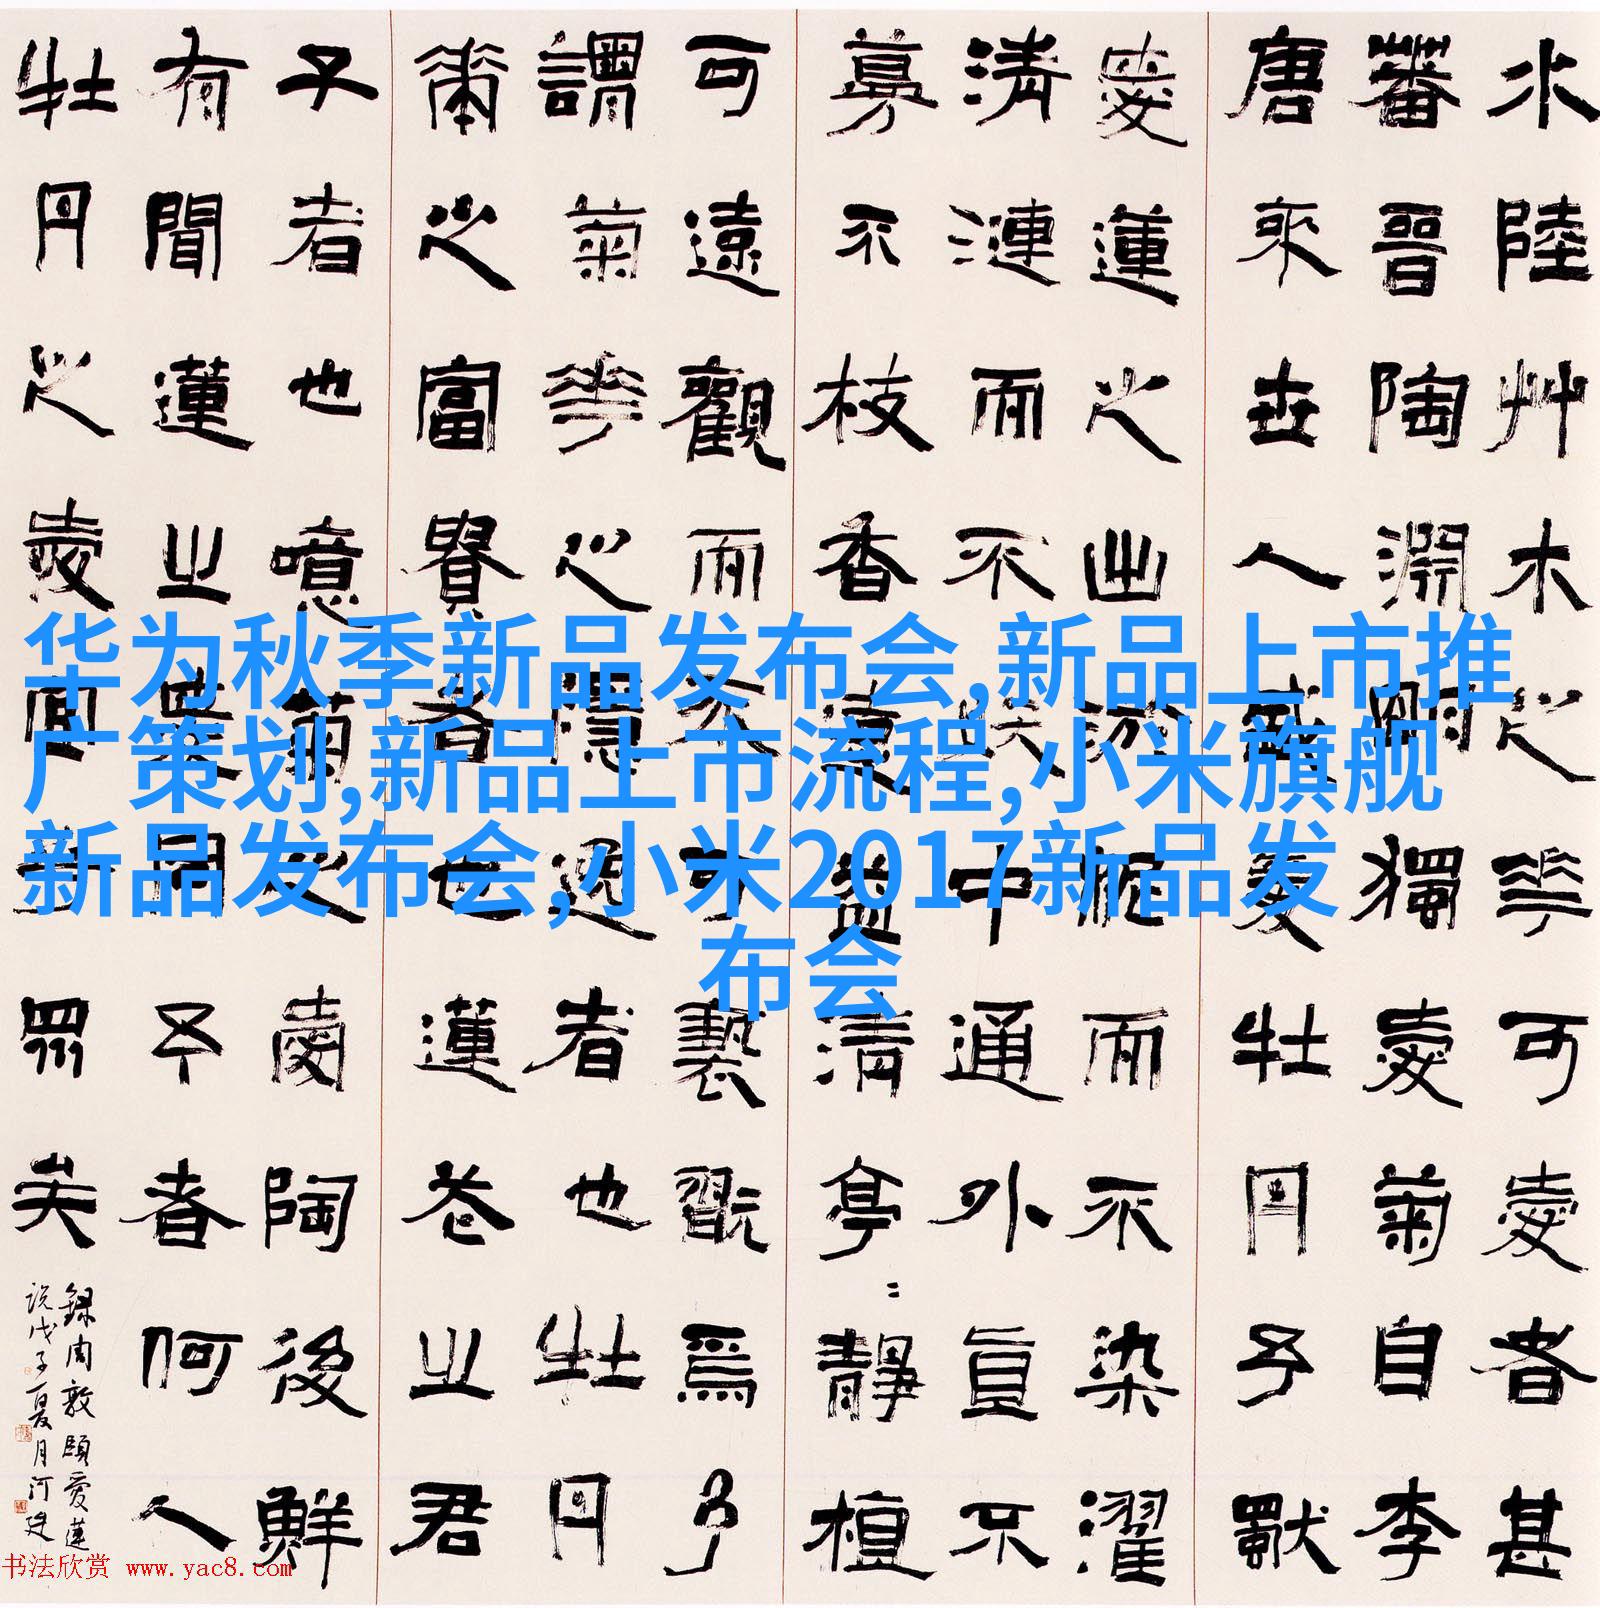 水陸艸木之花可愛者甚
蕃晉陶淵明獨愛菊自李
唐來世人盛愛牡丹予獨
愛蓮之出淤泥而不染濯
清漣而不妖中通外直不
蔓不枝香遠益清亭=靜植
可遠觀而不可褻翫焉予
謂菊花之隱逸者也牡丹
華之富貴者也蓮花之君
子者也噫菊之愛陶後鮮
有聞蓮之愛同予者何人
牡丹之愛宜乎眾矣
錄周敦頤愛蓮
說戊子夏月河建
华为秋季新品发布会,新品上市推
广策划,新品上市流程,小米旗舰
新品发布会,小米2017新品发
布会
书法欣赏 www.yac8.com